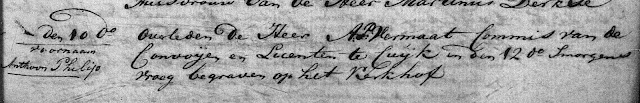 huisvrouw van de Heer Martinus Derkse
den 10 do overleden de Heer A:P: Vermaat Commis van de
voornaam
Convoijen en Licenten te Cuijk en den 12 do Smorgens
Anthoon Philip
vroeg begraven op het Kerkhof